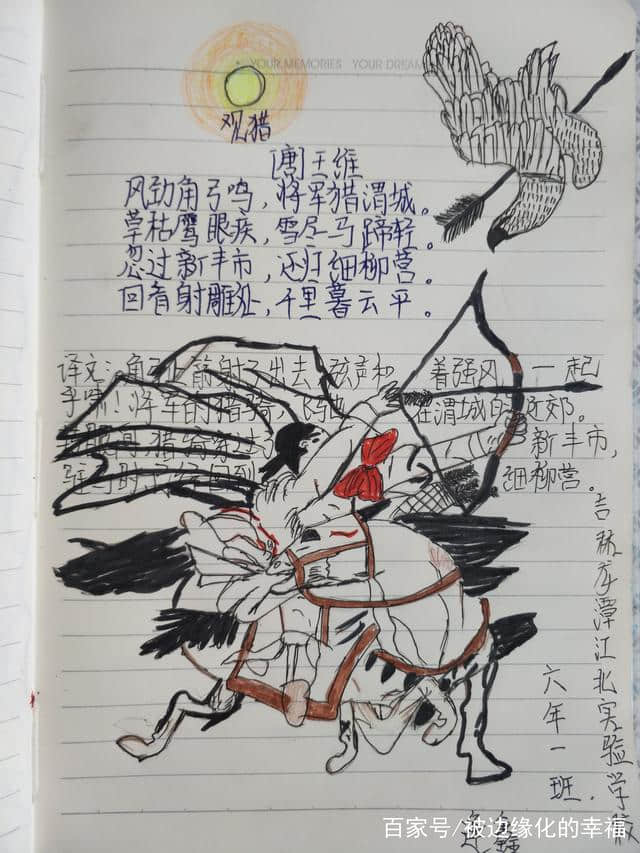 YOUR MEMORIES YOUR DREAM
观猎
[唐]王维
风劲角弓鸣，将军猎渭城。
草枯鹰眼疾，雪尽马蹄轻。
忽过新丰市，还归细柳营。
回看射雕处，千里暮云平。
译文：角弓上箭射了出去，弦声和着强风一起
呼啸！将军的猎骑飞驰在渭城的近郊。
新丰市，
细柳营。
吉林龙潭江北实验学校
六年一班.
百家号/被边缘化的幸福